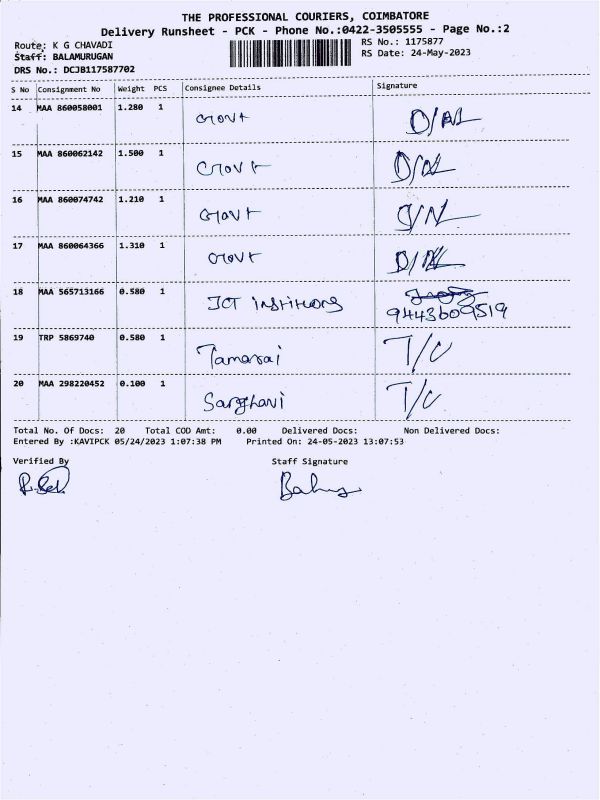 THE PROFESSIONAL COURIERS, COIMBATORE
Delivery Runsheet - PCK - Phone No.:0422-3505555 - Page No.:2
Route: K G CHAVADI RS No.: 1175877
Staff: BALAMURUGAN RS Date: 24-May-2023
DRS No.: DCJB117587702
S No Consignment No Weight PCS Consignee Details Signature
14 MAA 860058001 1.280 1 Govt
15 MAA 860062142 1.500 1 Govt
16 MAA 860074742 1.210 1 Govt
17 MAA 860064366 1.310 1 Govt
18 MAA 565713166 0.580 1 JCT institutions
9443609519
19 TRP 5869740 0.580 1 Tamarai T/C
20 MAA 298220452 0.100 1 T/C
Total No. Of Docs: 20 Total COD Amt: 0.00 Delivered Docs: Non Delivered Docs:
Entered By :KAVIPCK 05/24/2023 1:07:38 PM Printed On: 24-05-2023 13:07:53
Verified By Staff Signature